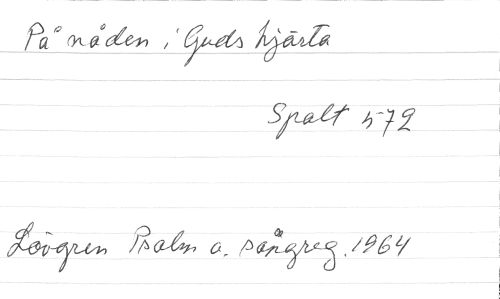 På nåden i Guds hjärta
Spalt 572
Lövgren Psalm o. sångreg. 1964